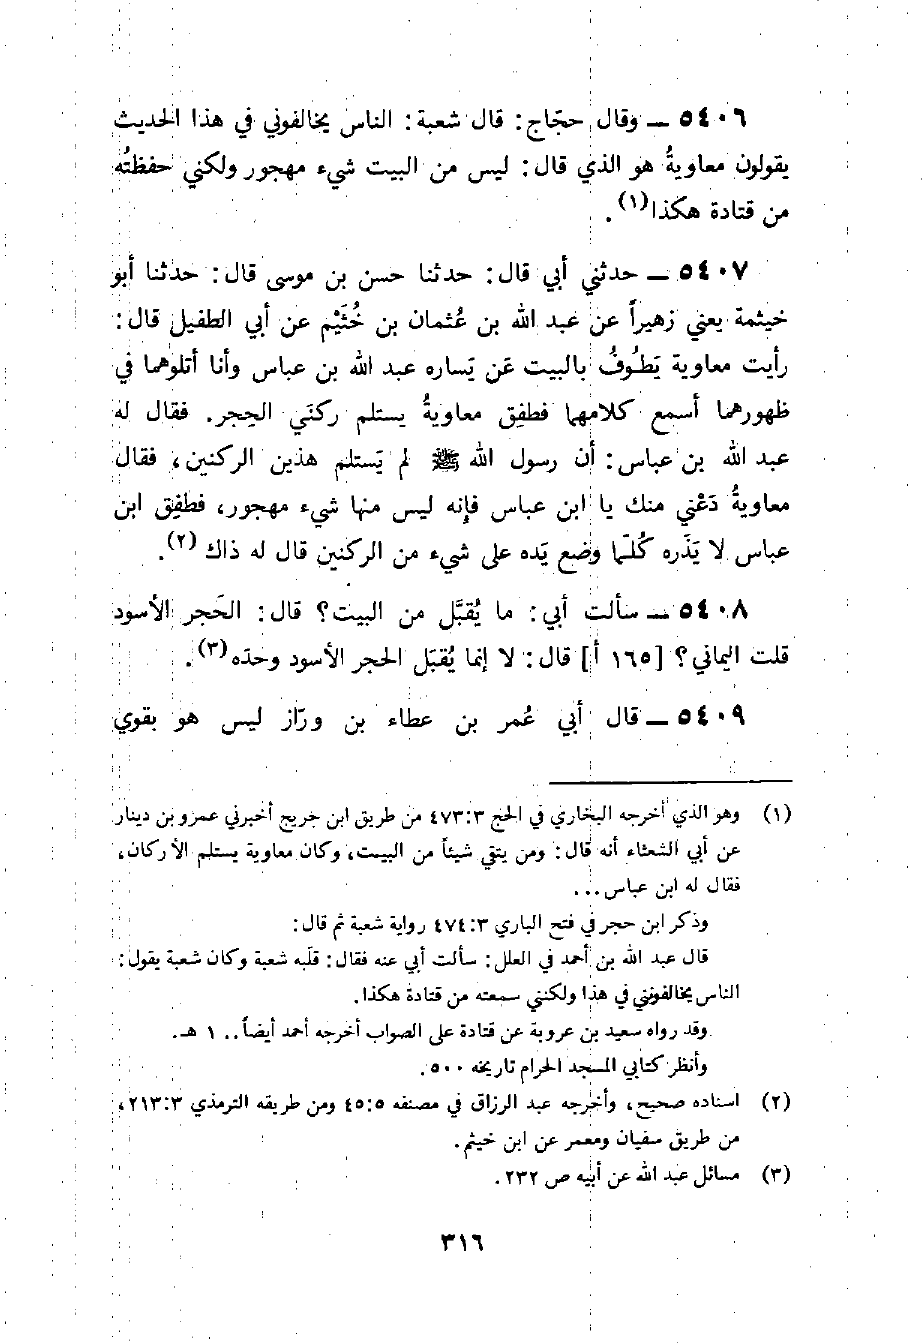 ٥٤٠٦ ــ وقال حجّاج: قال شعبة: الناس يخالفوني في هذا الحديث
يقولون معاويةُ هو الذي قال: ليس من البيت شيء مهجور ولكني حفظتُه
من قتادة هكذا(١).
٥٤٠٧ ــ حدثني أبي قال: حدثنا حسن بن موسى قال: حدثنا أبو
خيثمة يعني زهيراً عن عبد الله بن عُثمان بن خُثَيْم عن أبي الطفيل قال:
رأيت معاوية يَطُوفُ بالبيت عَن يَساره عبد الله بن عباس وأنا أتلوهما في
ظهورهما أسمع كلامهما فطفِق معاويةُ يستلم ركنَي الحِجر. فقال له
عبد الله بن عباس: أن رسول الله ﷺ لم يَستلم هذين الركنين، فقال
معاويةُ دَعْني منك يا ابن عباس فإنه ليس منها شيء مهجور، فطفِق ابن
عباس لا يَذَره كُلمّا وضع يَده على شيء من الركنين قال له ذاك (٢).
٥٤٠٨ ــ سألت أبي: ما يُقبَّل من البيت؟ قال: الحَجر الأسود
قلت اليماني؟ [١٦٥ أ] قال: لا إنما يُقبَل الحجر الأسود وحدَه(٣).
٥٤٠٩ ــ قال أبي عُمر بن عطاء بن ورّاز ليس هو بقوي
(١) وهو الذي أخرجه البخاري في الحج ٤٧٣:٣ من طريق ابن جريج أخبرني عمرو بن دينار
عن أبي الشعثاء أنه قال: ومن يتقي شيئاً من البيت، وكان معاوية يستلم الأركان،
فقال له ابن عباس...
وذكر ابن حجر في فتح الباري ٤٧٤:٣ رواية شعبة ثم قال:
قال عبد الله بن أحمد في العلل: سألت أبي عنه فقال: قلَبه شعبة وكان شعبة يقول:
الناس يخالفونني في هذا ولكنني سمعته من قتادة هكذا.
وقد رواه سعيد بن عروبة عن قتادة على الصواب أخرجه أحمد أيضاً.. ١ هـ.
وأنظر كتابي المسجد الحرام تاريخه ٥٠٠.
(٢) اسناده صحيح، وأخرجه عبد الرزاق في مصنفه ٤٥:٥ ومن طريقه الترمذي ٢١٣:٣،
من طريق سفيان ومعمر عن ابن خيثم.
(٣) مسائل عبد الله عن أبيه ص ٢٣٢.
٣١٦